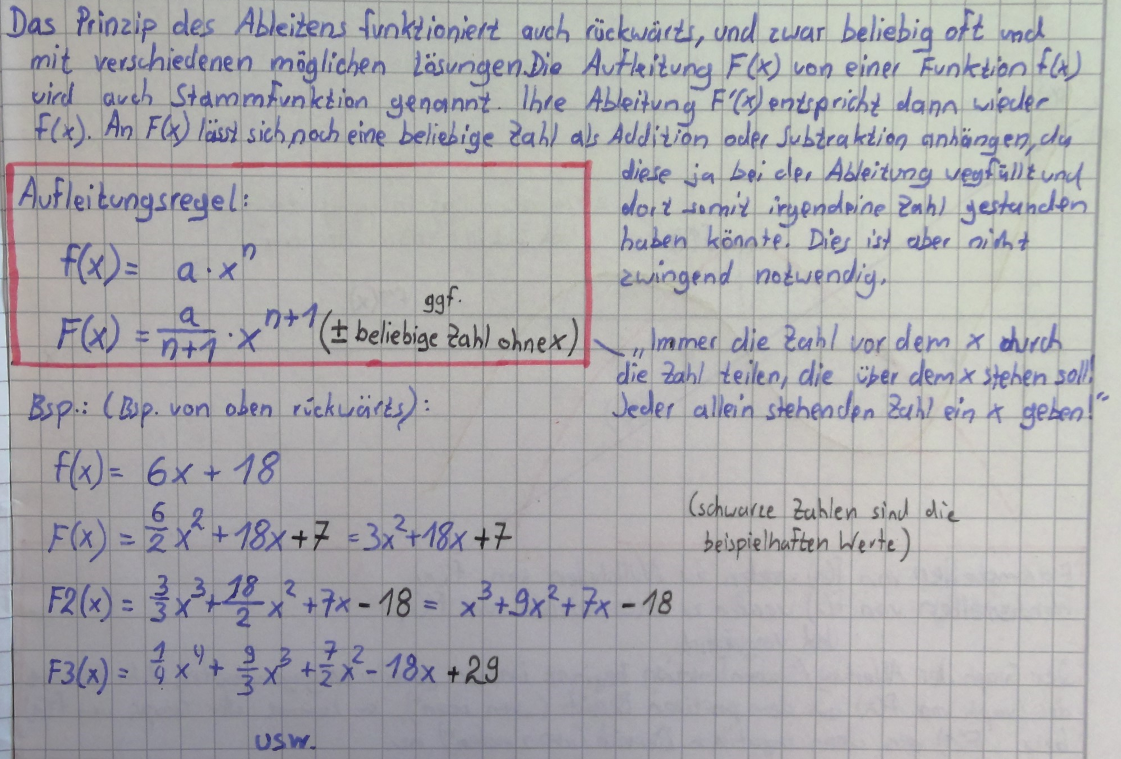 Das Prinzip des Ableitens funktioniert auch rückwärts, und zwar beliebig oft und
mit verschiedenen möglichen Lösungen. Die Aufleitung F(x) von einer Funktion f(x)
wird auch Stammfunktion genannt. Ihre Ableitung F'(x) entspricht dann wieder
f(x). An F(x) lässt sich noch eine beliebige Zahl als Addition oder Subtraktion anhängen, da
diese ja bei der Ableitung wegfällt und
dort somit irgendeine Zahl gestanden
haben könnte. Dies ist aber nicht
zwingend notwendig.
Aufleitungsregel:
f(x) = a · xⁿ
F(x) = a/(n+1) · xⁿ⁺¹ (± ggf. beliebige Zahl ohne x)
„Immer die Zahl vor dem x durch
die Zahl teilen, die über dem x stehen soll!
Jeder allein stehenden Zahl ein x geben!“
Bsp.: (Bsp. von oben rückwärts):
f(x) = 6x + 18
F(x) = 6/2 x² + 18x + 7 = 3x² + 18x + 7
(schwarze Zahlen sind die
beispielhaften Werte)
F2(x) = 3/3 x³ + 18/2 x² + 7x - 18 = x³ + 9x² + 7x - 18
F3(x) = 1/4 x⁴ + 9/3 x³ + 7/2 x² - 18x + 29
usw.